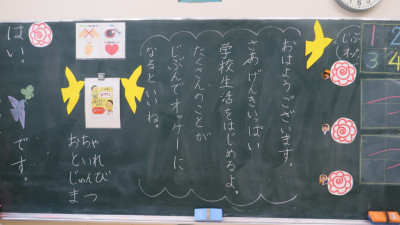 じぶ
(わた
1 2
3 4
おはようございます。
さあ げんきいっぱい
学校生活をはじめるよ。
たくさんのことが
じぶんでオッケーに
なるといいね。
おちゃ
といれ
じゅんび
まつ
はい!
です。